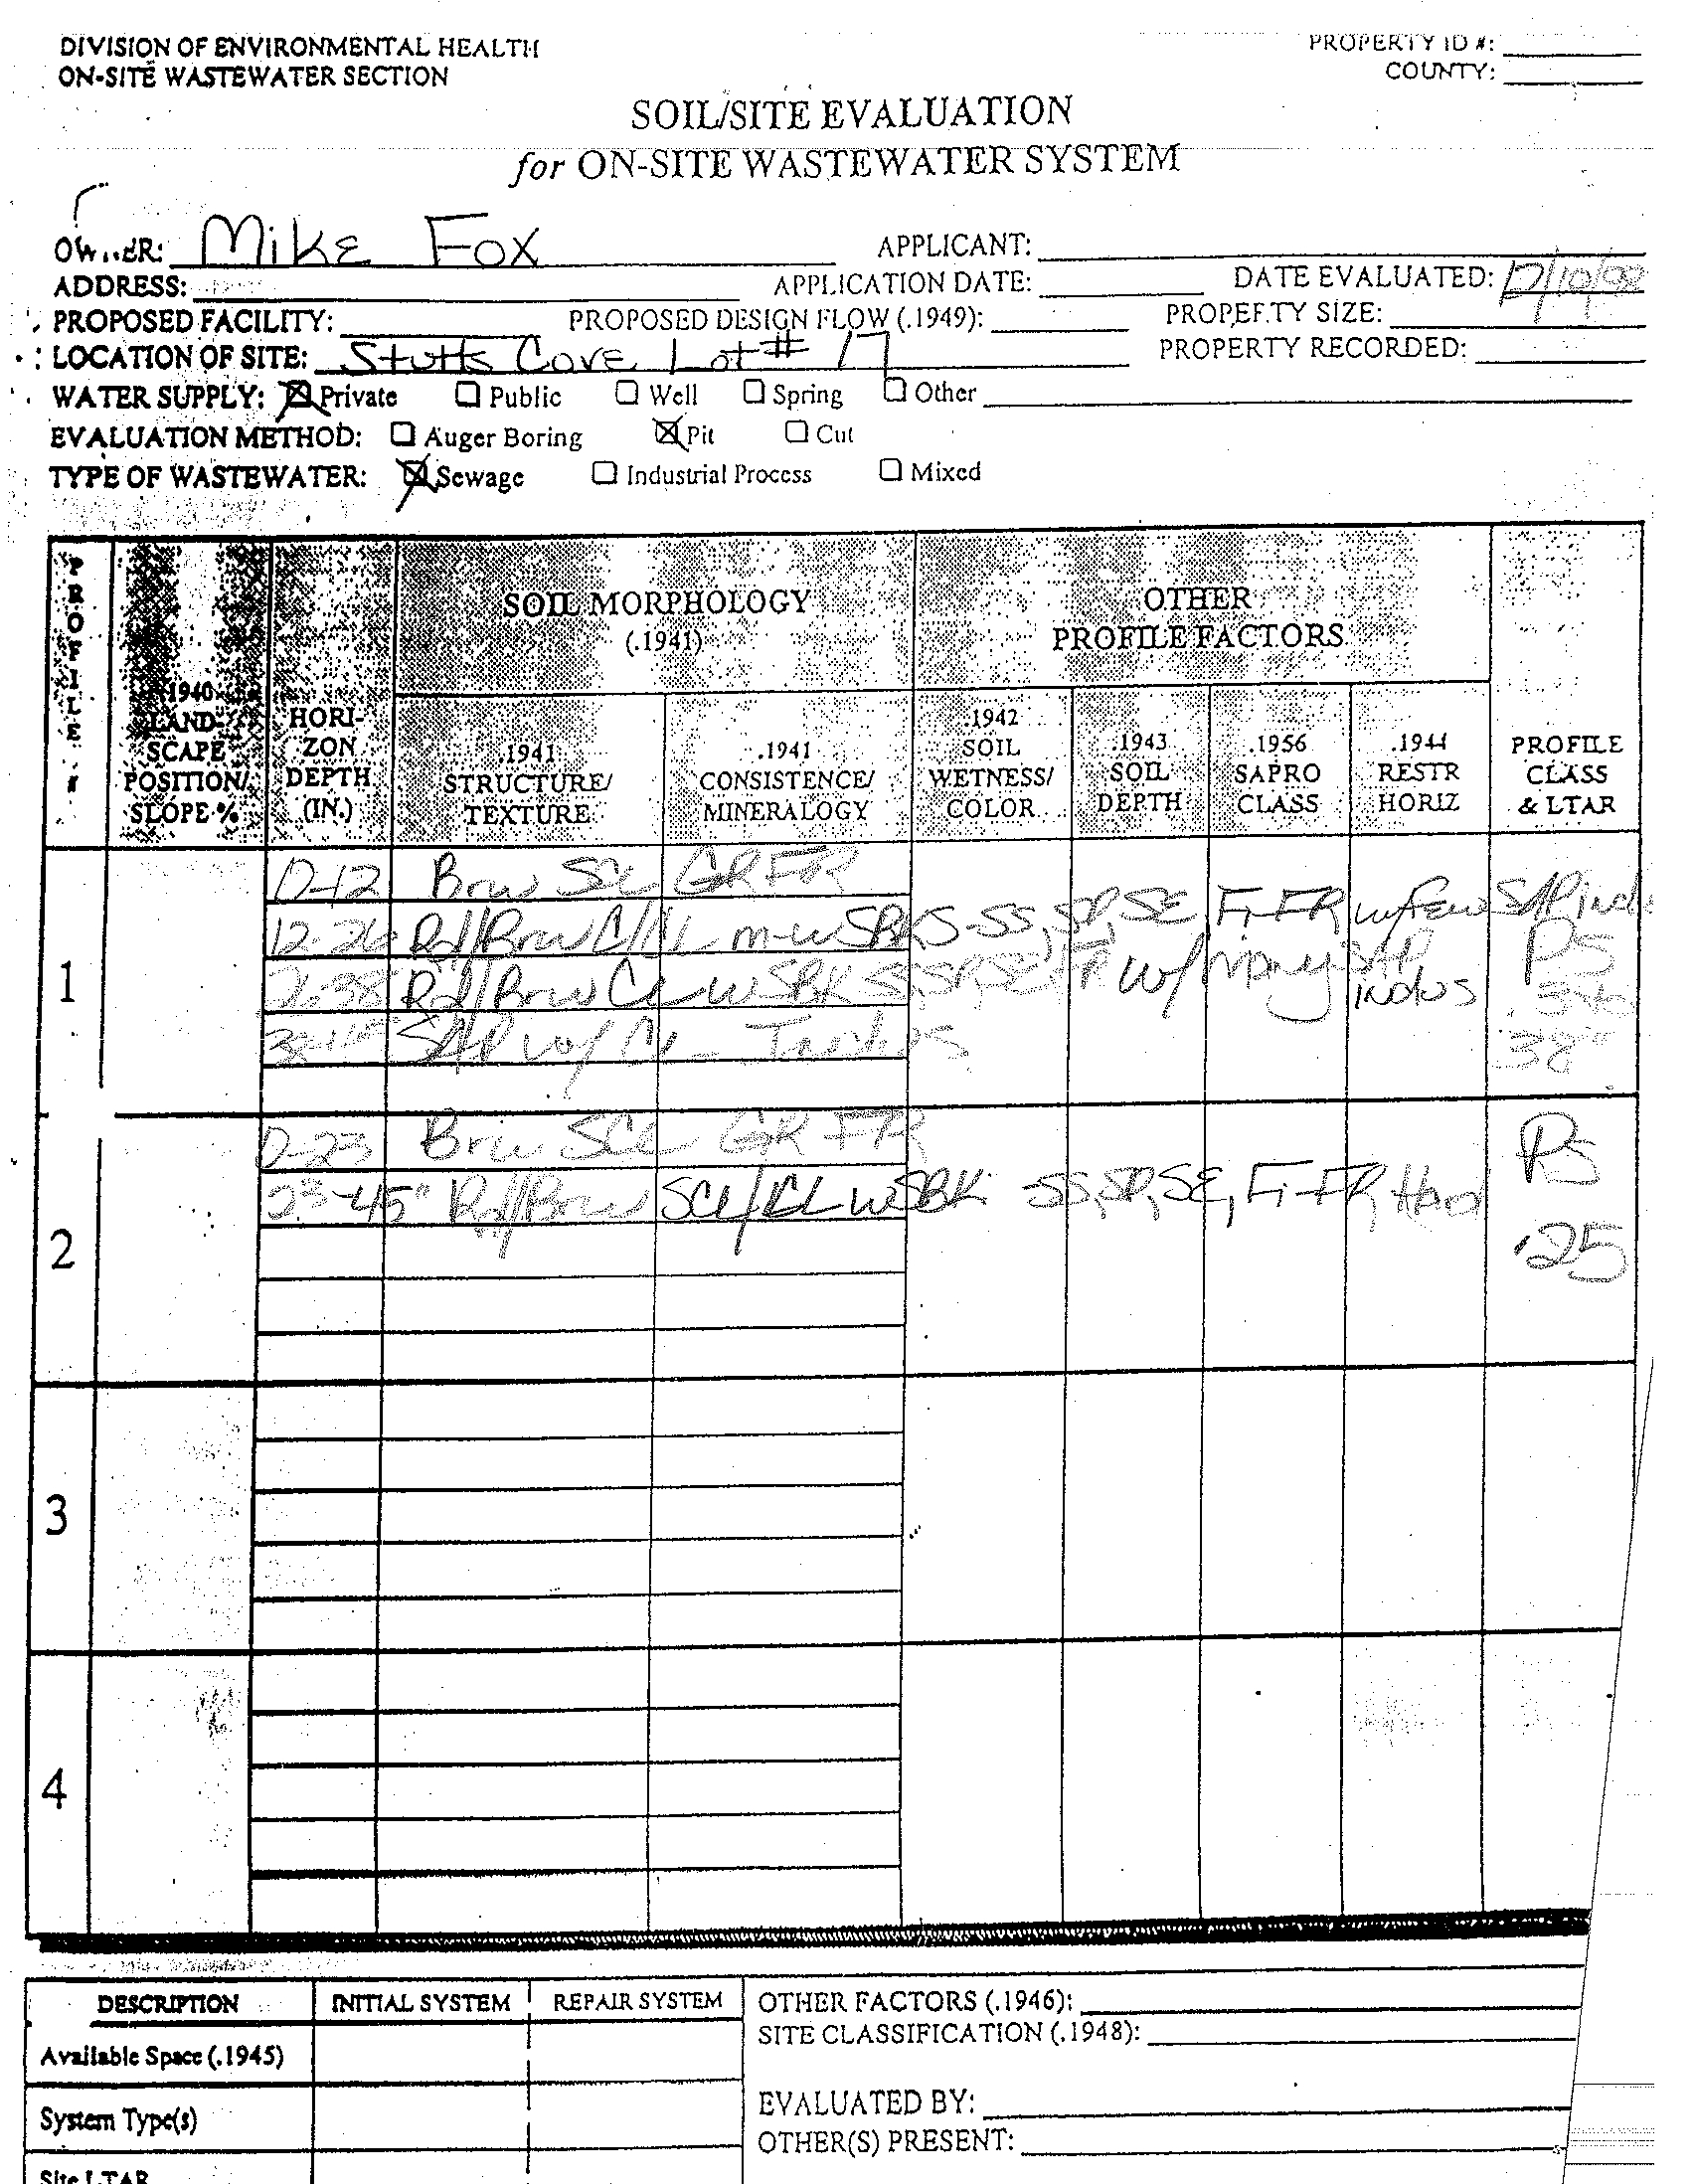 DIVISION OF ENVIRONMENTAL HEALTH
ON-SITE WASTEWATER SECTION
PROPERTY ID #:
COUNTY:
SOIL/SITE EVALUATION
for ON-SITE WASTEWATER SYSTEM
OWNER: Mike Fox APPLICANT:
ADDRESS: APPLICATION DATE: DATE EVALUATED: 12/10/98
PROPOSED FACILITY: PROPOSED DESIGN FLOW (.1949): PROPERTY SIZE:
LOCATION OF SITE: Stutts Cove Lot # 17 PROPERTY RECORDED:
WATER SUPPLY: ☒ Private ☐ Public ☐ Well ☐ Spring ☐ Other
EVALUATION METHOD: ☐ Auger Boring ☒ Pit ☐ Cut
TYPE OF WASTEWATER: ☒ Sewage ☐ Industrial Process ☐ Mixed
PROFILE #
.1940 LAND-SCAPE POSITION/ SLOPE %
HORI-ZON DEPTH (IN.)
SOIL MORPHOLOGY (.1941)
OTHER PROFILE FACTORS
.1941 STRUCTURE/ TEXTURE
.1941 CONSISTENCE/ MINERALOGY
.1942 SOIL WETNESS/ COLOR
.1943 SOIL DEPTH
.1956 SAPRO CLASS
.1944 RESTR HORIZ
PROFILE CLASS & LTAR
1
0-12 Brw SCL GR FR
12-26 Rd/Brw C/CL m-w SBK S-SS, SP, SE Fi-FR w/few SAP
26-38 Rd/Brw CL w SBK SS, SP, SE FR w/ many SAP
SAP w/ CL
PS
38"
2
0-23 Brw SCL GR FR
23-45" Rd/Brw SCL/CL w SBK SS, SP, SE, Fi-FR, Hard
PS
.25
3
4
DESCRIPTION INITIAL SYSTEM REPAIR SYSTEM
Available Space (.1945)
System Type(s)
Site LTAR
OTHER FACTORS (.1946):
SITE CLASSIFICATION (.1948):
EVALUATED BY:
OTHER(S) PRESENT: